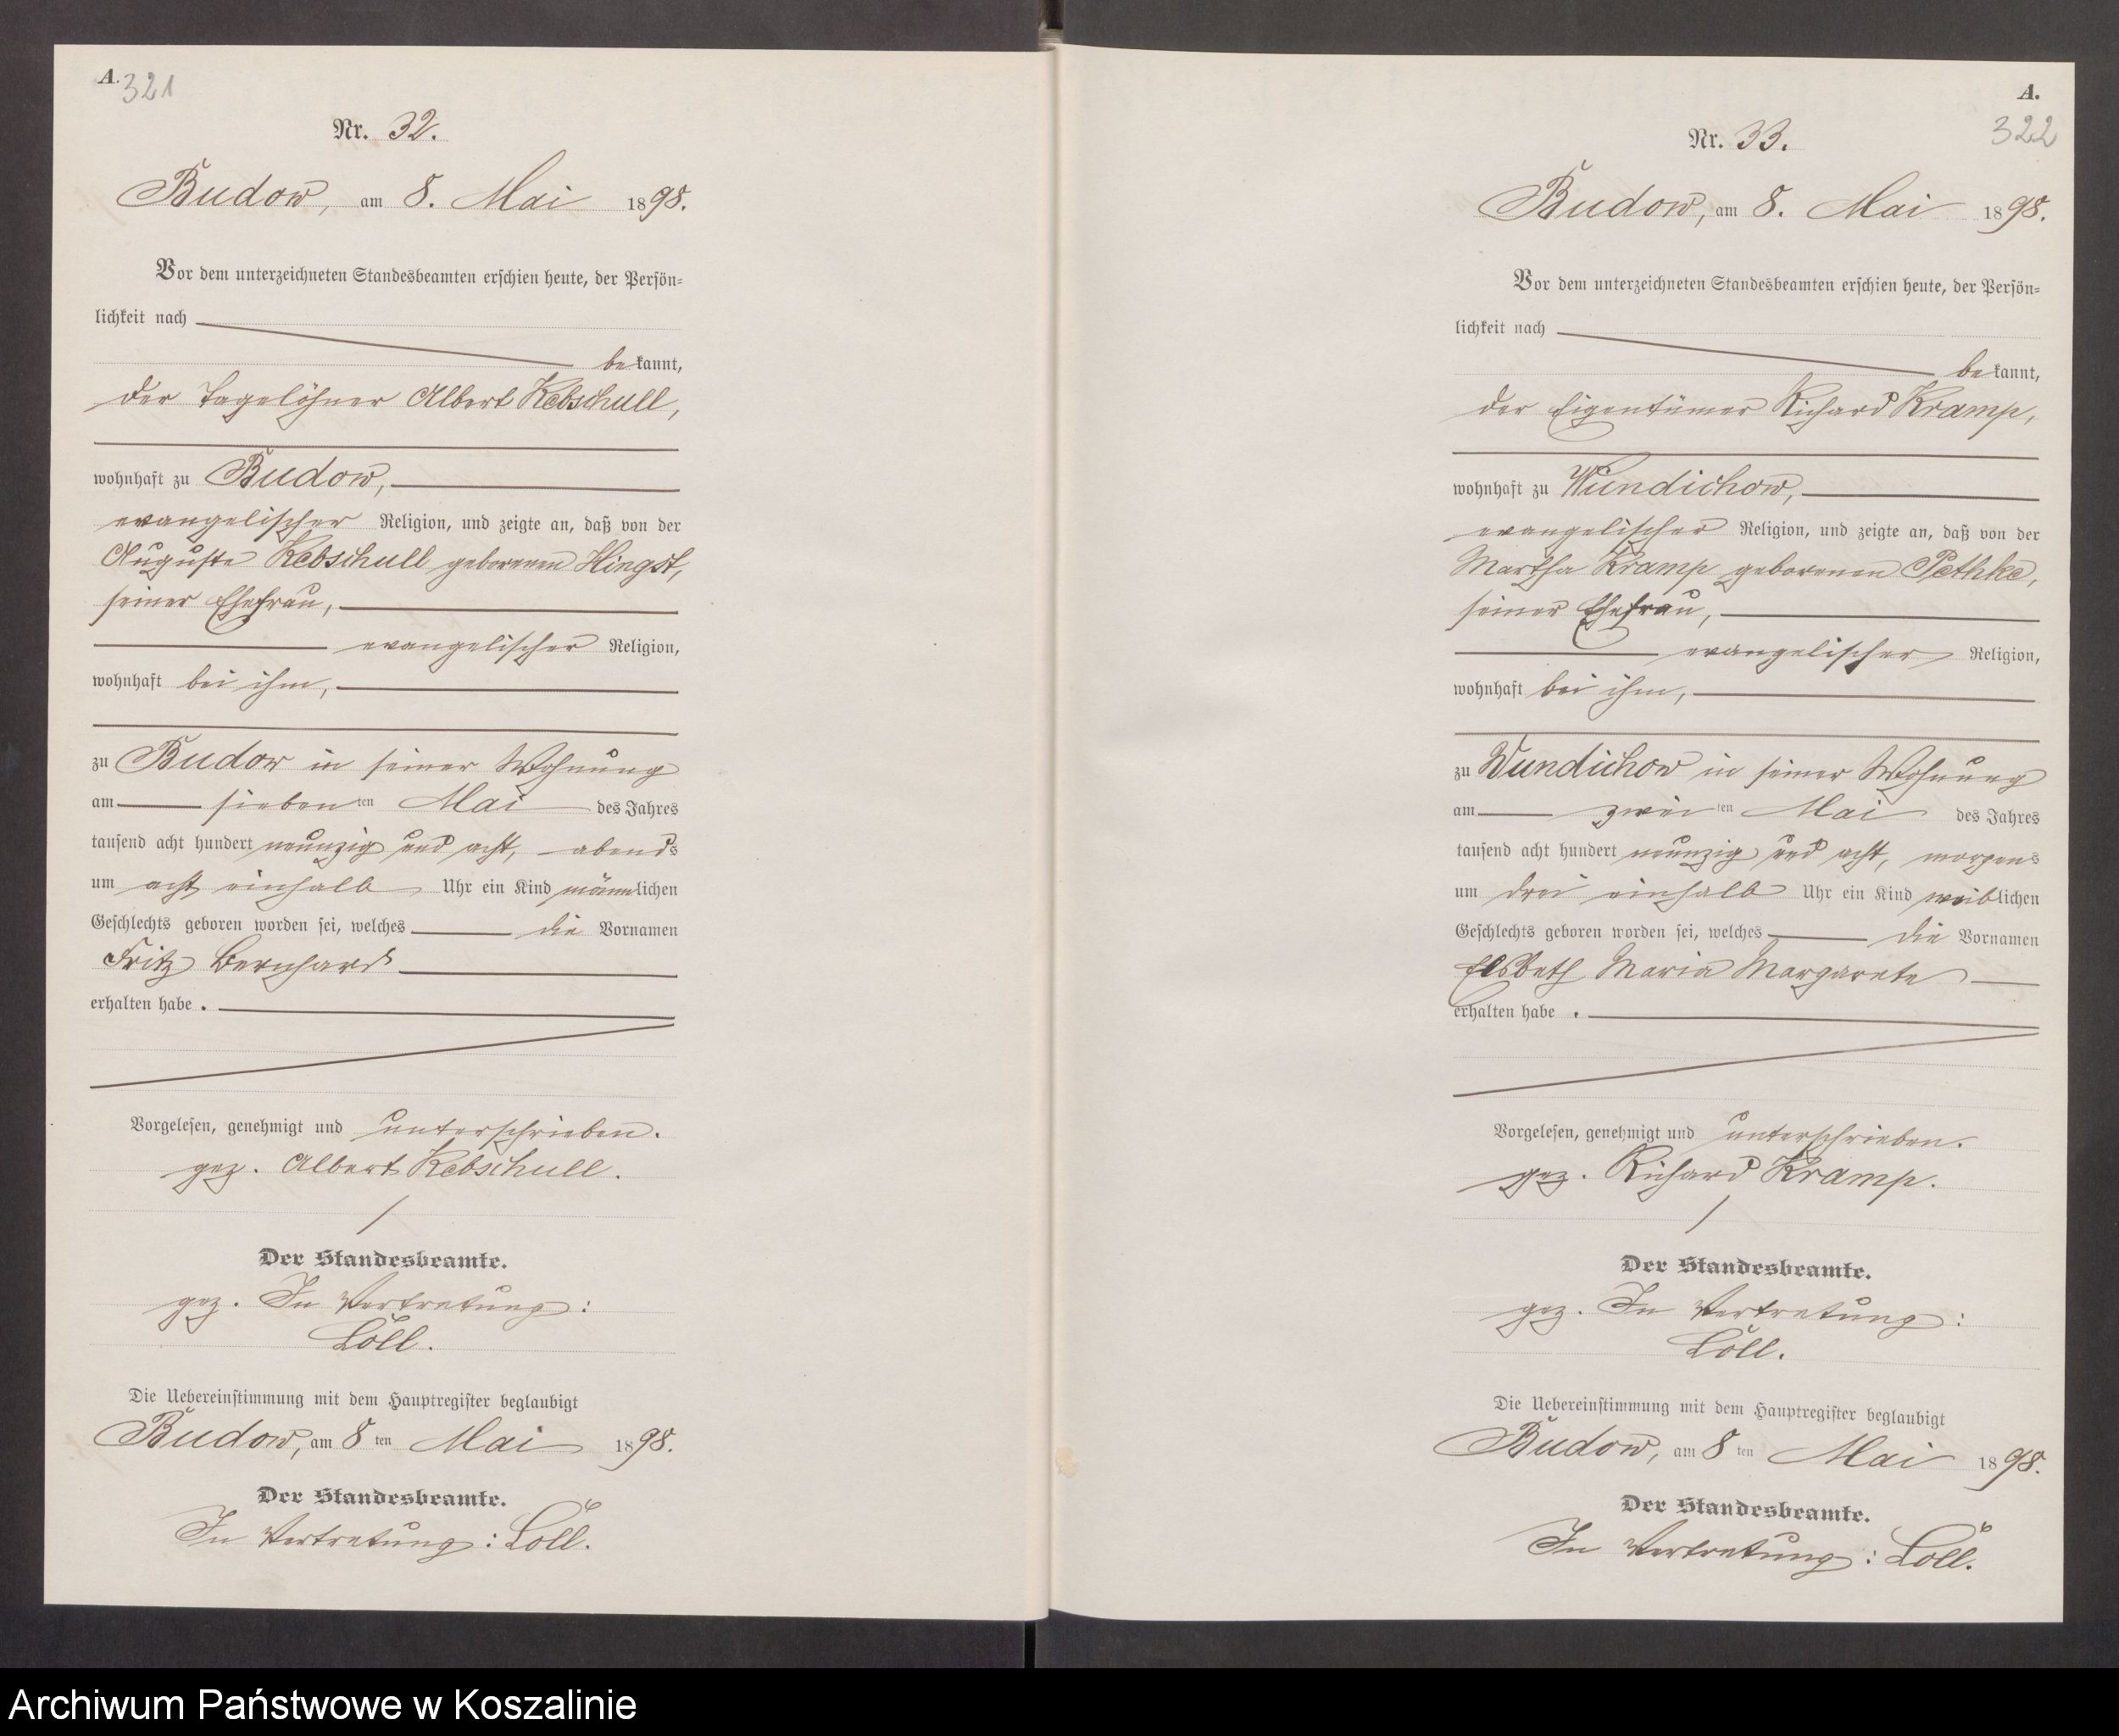 A.
321
Nr. 32.
Budow, am 8. Mai 1898.
Vor dem unterzeichneten Standesbeamten erschien heute, der Persön-
lichkeit nach
bekannt,
der Tagelöhner Albert Kebschull,
wohnhaft zu Budow,
evangelischer Religion, und zeigte an, daß von der
Auguste Kebschull geborenen Hingst,
seiner Ehefrau,
evangelischer Religion,
wohnhaft bei ihm,
zu Budow in seiner Wohnung
am siebenten Mai des Jahres
tausend acht hundert neunzig und acht, abends
um acht einhalb Uhr ein Kind männlichen
Geschlechts geboren worden sei, welches die Vornamen
Fritz Bernhard
erhalten habe.
Vorgelesen, genehmigt und unterschrieben.
gez. Albert Kebschull.
Der Standesbeamte.
gez. In Vertretung:
Löll.
Die Uebereinstimmung mit dem Hauptregister beglaubigt
Budow, am 8ten Mai 1898.
Der Standesbeamte.
In Vertretung: Löll.
A.
322
Nr. 33.
Budow, am 8. Mai 1898.
Vor dem unterzeichneten Standesbeamten erschien heute, der Persön-
lichkeit nach
bekannt,
der Eigentümer Richard Kramp,
wohnhaft zu Wundichow,
evangelischer Religion, und zeigte an, daß von der
Martha Kramp geborenen Pethke,
seiner Ehefrau,
evangelischer Religion,
wohnhaft bei ihm,
zu Wundichow in seiner Wohnung
am zweiten Mai des Jahres
tausend acht hundert neunzig und acht, morgens
um drei einhalb Uhr ein Kind weiblichen
Geschlechts geboren worden sei, welches die Vornamen
Elsbeth Maria Margarete
erhalten habe.
Vorgelesen, genehmigt und unterschrieben.
gez. Richard Kramp.
Der Standesbeamte.
gez. In Vertretung:
Löll.
Die Uebereinstimmung mit dem Hauptregister beglaubigt
Budow, am 8ten Mai 1898.
Der Standesbeamte.
In Vertretung: Löll.
Archiwum Państwowe w Koszalinie